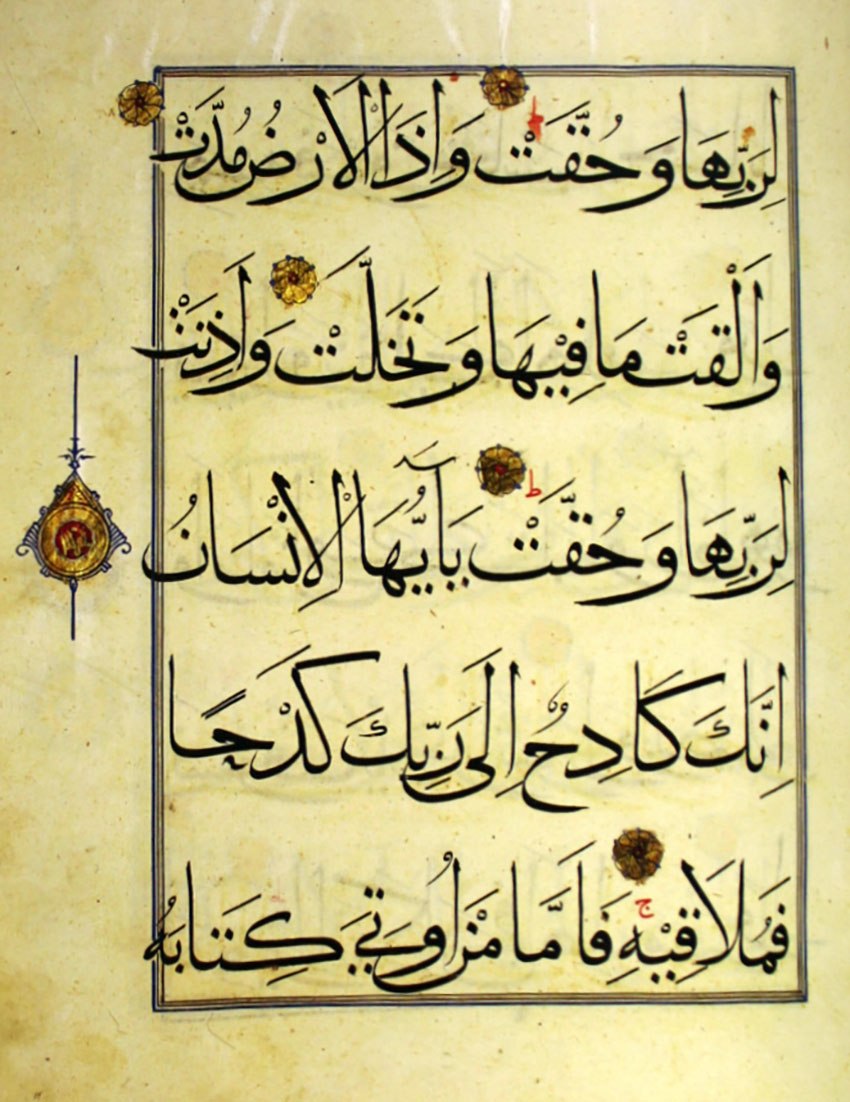 لِرَبِّهَا وَحُقَّتْ ط وَاِذَا الْاَرْضُ مُدَّتْ
وَاَلْقَتْ مَا فِيْهَا وَتَخَلَّتْ وَاَذِنَتْ
لِرَبِّهَا وَحُقَّتْ ط يَا اَيُّهَا الْاِنْسَانُ
اِنَّكَ كَادِحٌ اِلَى رَبِّكَ كَدْحًا
فَمُلَاقِيْهِ ج فَاَمَّا مَنْ اُوتِيَ كِتَابَهُ